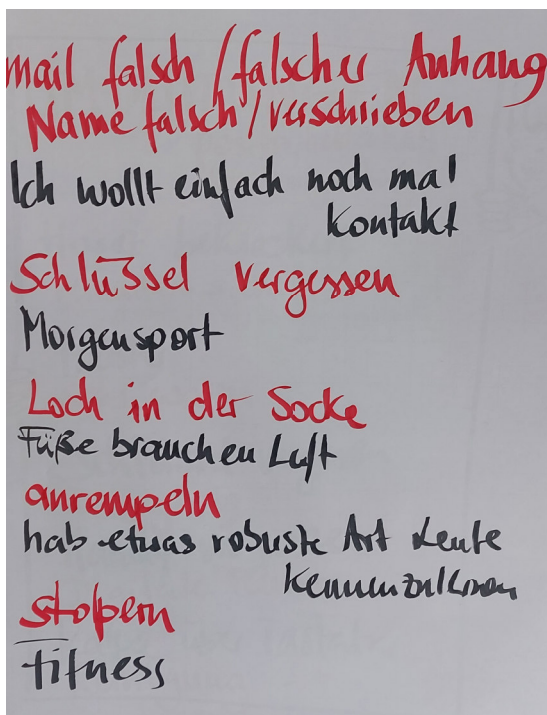 mail falsch / falscher Anhang
Name falsch / verschrieben
Ich wollt einfach noch mal
Kontakt
Schlüssel vergessen
Morgensport
Loch in der Socke
Füße brauchen Luft
anrempeln
hab etwas robuste Art Leute
kennenzulernen
stolpern
Fitness